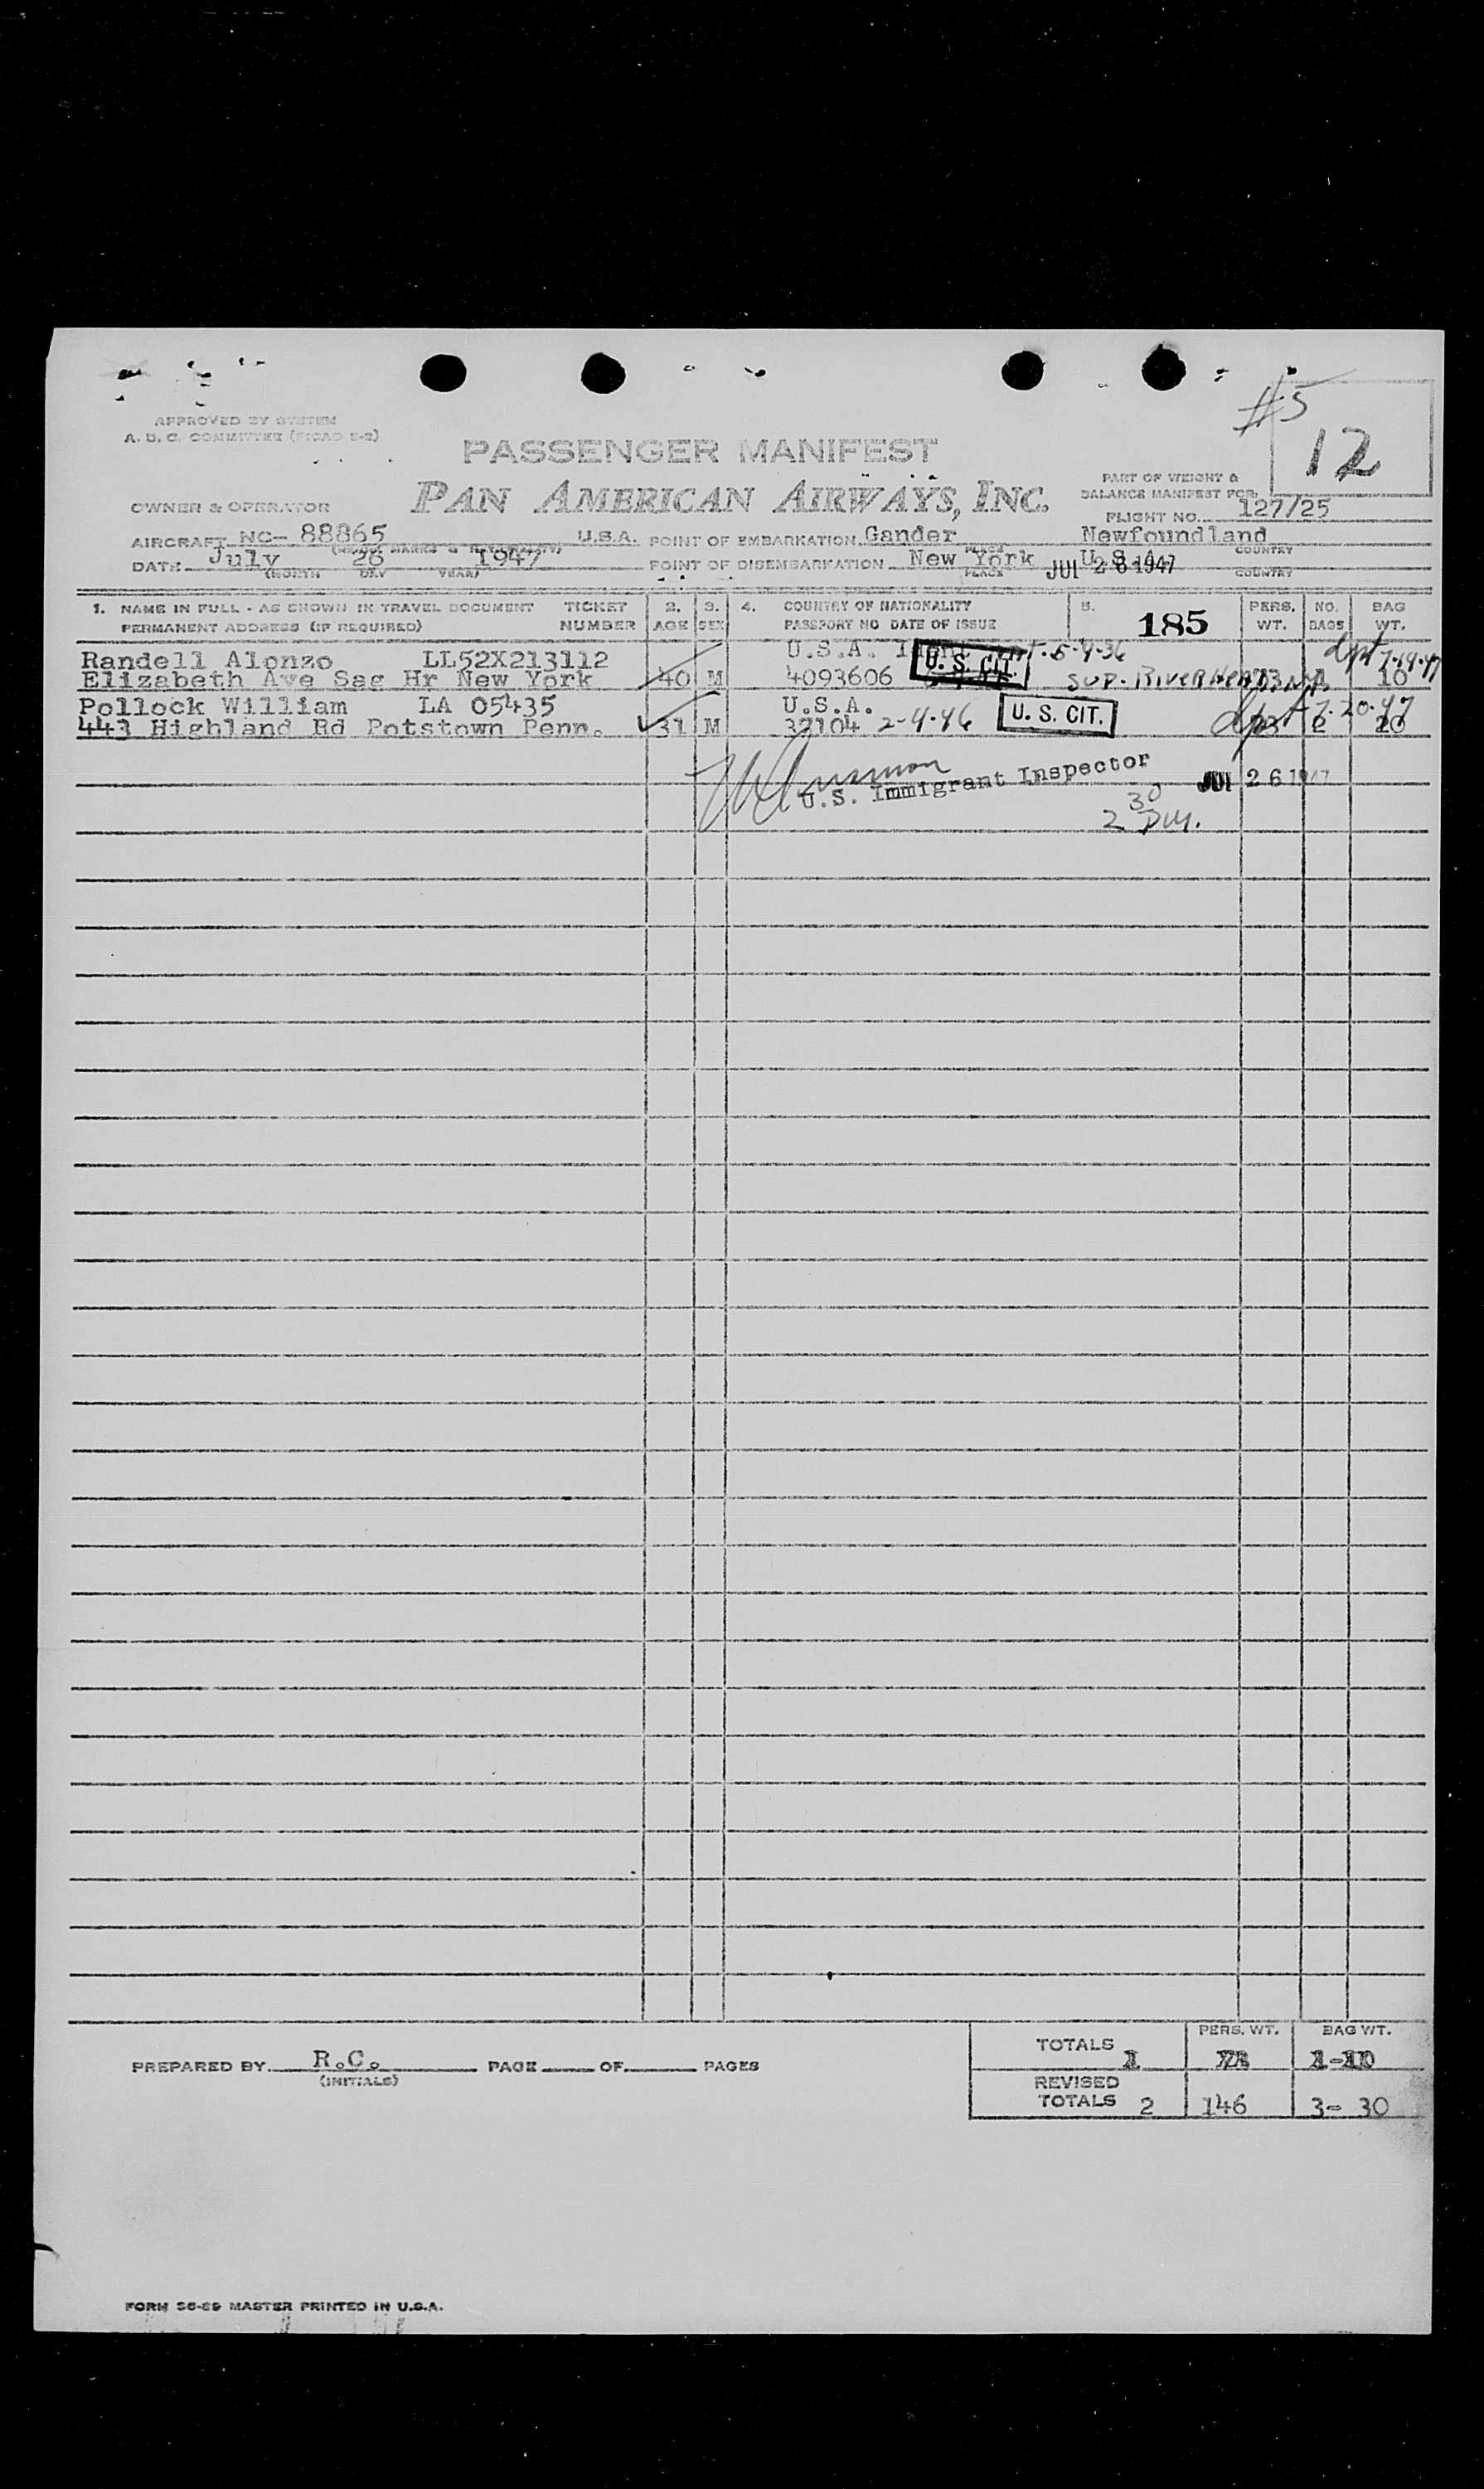 #5
12
APPROVED BY SYSTEM
A. D. C. COMMITTEE (PICAO E-2)
PASSENGER MANIFEST
PAN AMERICAN AIRWAYS, INC.
PART OF WEIGHT &
BALANCE MANIFEST FOR
FLIGHT NO. 127/25
OWNER & OPERATOR
AIRCRAFT NC- 88865 U.S.A. POINT OF EMBARKATION Gander Newfoundland
PLACE COUNTRY
DATE July 26 1947 POINT OF DISEMBARKATION New York U.S.A. JUL 26 1947
(MONTH DAY YEAR) PLACE COUNTRY
1. NAME IN FULL - AS SHOWN IN TRAVEL DOCUMENT TICKET 2. 3. 4. COUNTRY OF NATIONALITY 5. 185 PERS. NO. BAG
PERMANENT ADDRESS (IF REQUIRED) NUMBER AGE SEX PASSPORT NO DATE OF ISSUE WT. BAGS WT.
Randell Alonzo LL52X213112 U.S.A. 5-4-36 dpt 7-19-47
Elizabeth Ave Sag Hr New York 40 M 4093606 U. S. CIT. SUP. RIVERHEAD, N.Y. 10
Pollock William LA 05435 U.S.A. dpt 7-20-47
443 Highland Rd Potstown Penn. 31 M 37104 2-4-46 U. S. CIT. 2 20
U.S. Immigrant Inspector JUL 26 1947
2 30 P.M.
TOTALS 1 PERS. WT. BAG WT.
PREPARED BY R.C. PAGE OF PAGES
(INITIALS)
REVISED
TOTALS 2 146 3- 30
FORM 36-69 MASTER PRINTED IN U.S.A.